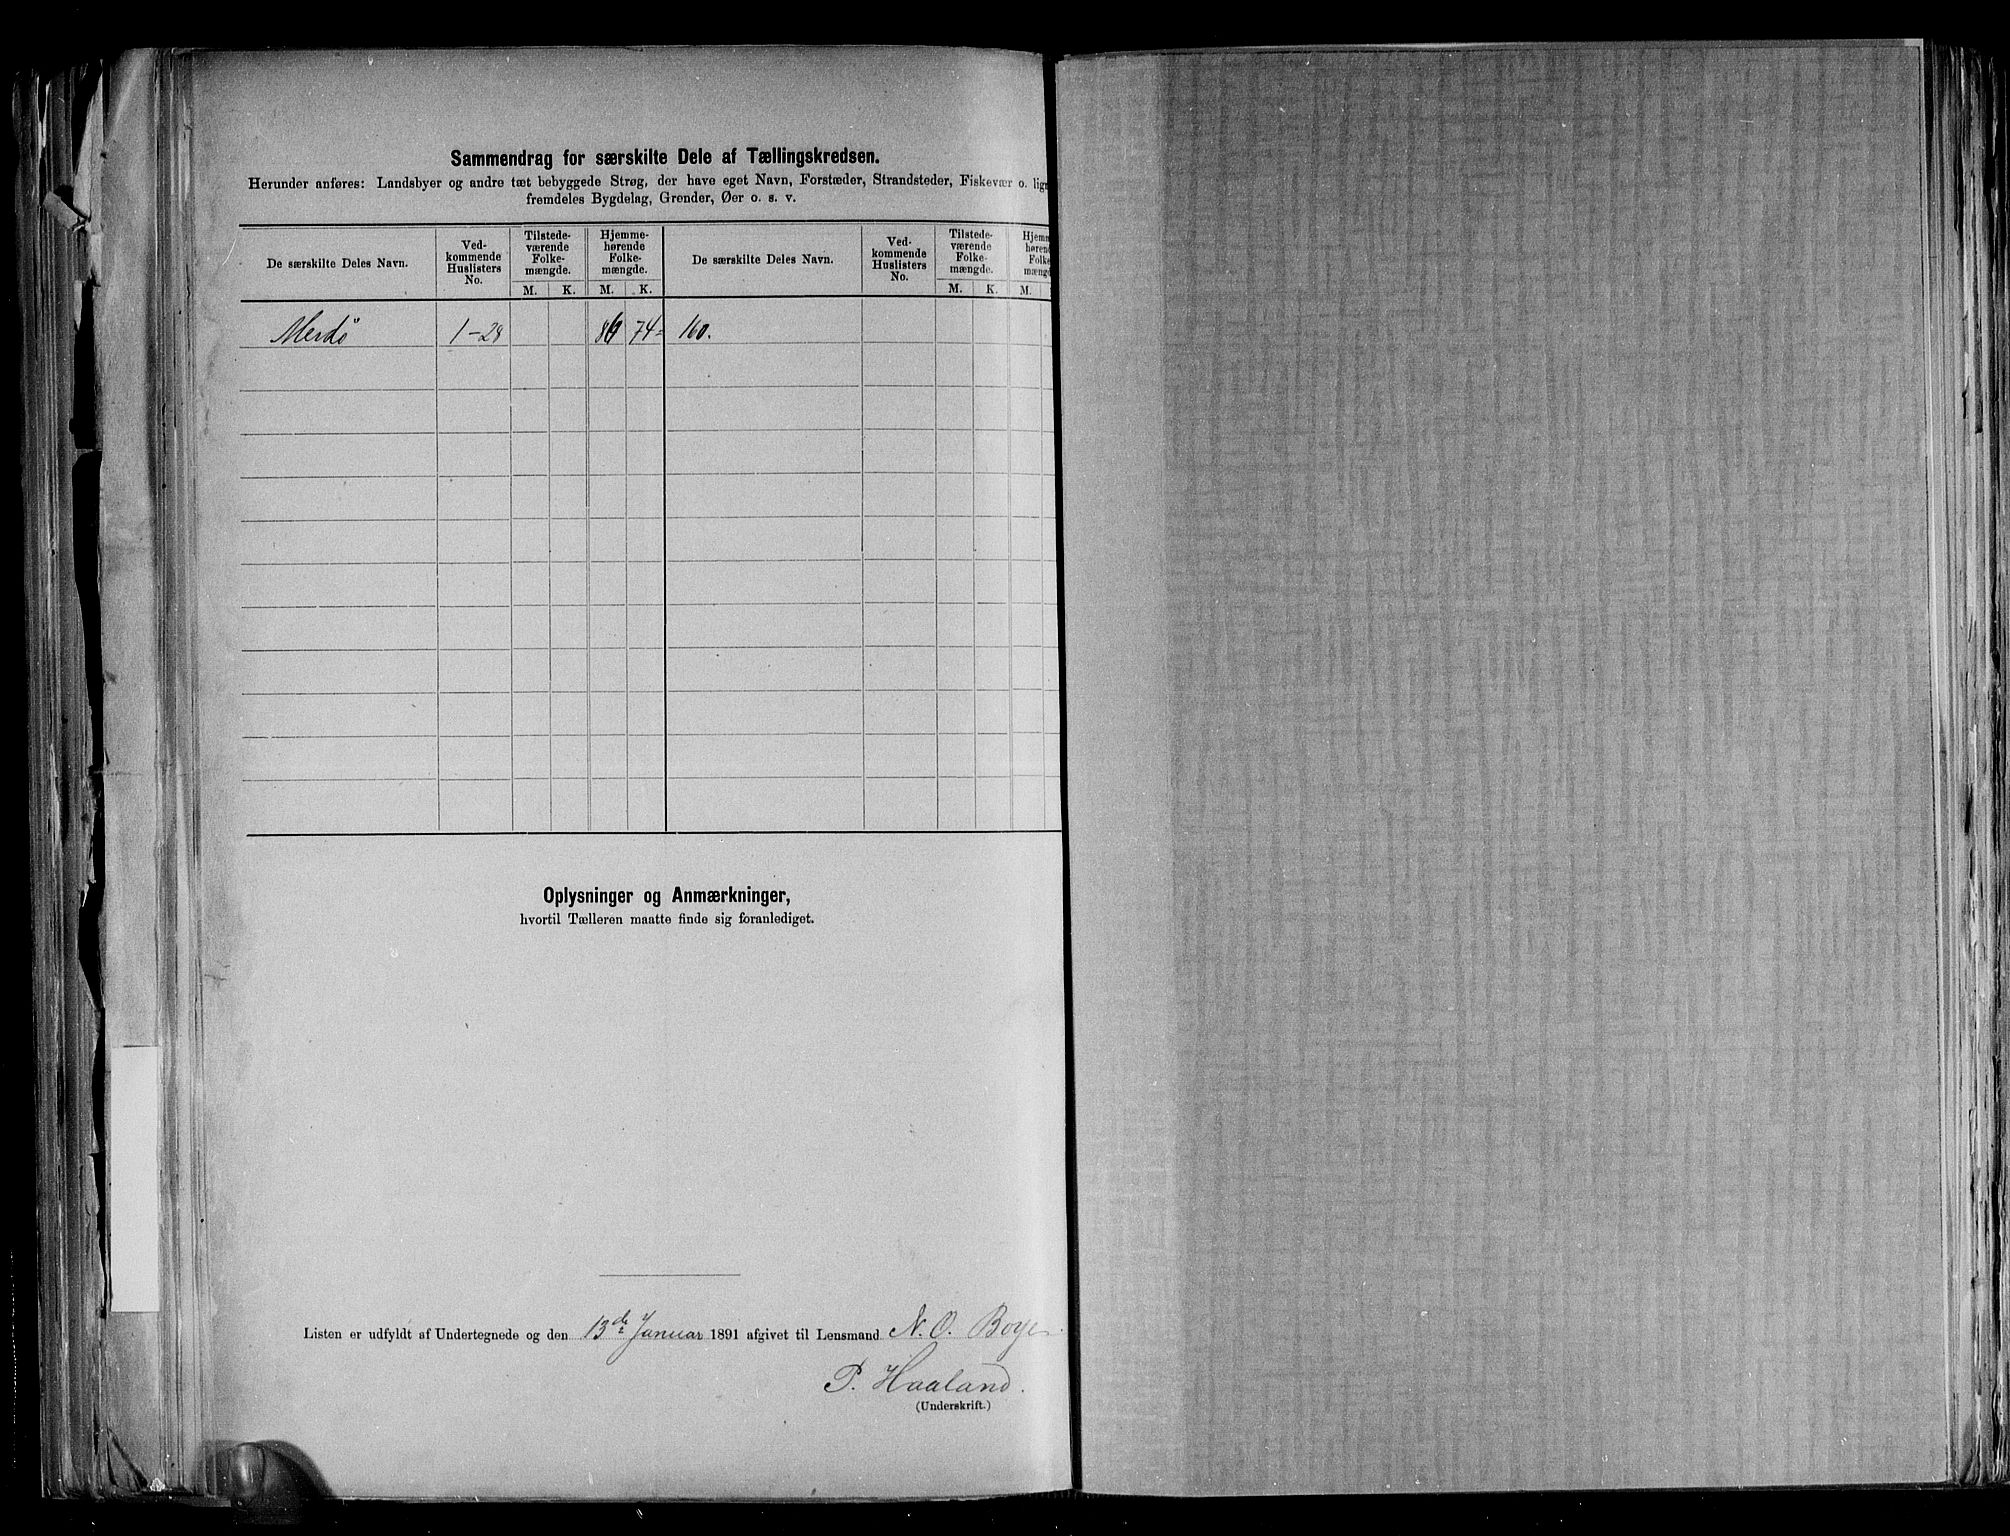 Sammendrag for særskilte Dele af Tællingskredsen.
Herunder anføres: Landsbyer og andre tæt bebyggede Strøg, der have eget Navn, Forstæder, Strandsteder, Fiskevær o. lign
fremdeles Bygdelag, Grender, Øer o. s. v.
De særskilte Deles Navn.
Ved-
kommende
Huslisters
No.
Tilstede-
værende
Folke-
mængde.
Hjemme-
hørende
Folke-
mængde.
De særskilte Deles Navn.
Ved-
kommende
Huslisters
No.
Tilstede-
værende
Folke-
mængde.
Hjemm
høren
Folke
mængd
M. K. M. K. M. K. M.
Merdø 1-28 86 74 = 160.
Oplysninger og Anmærkninger,
hvortil Tælleren maatte finde sig foranlediget.
Listen er udfyldt af Undertegnede og den 13de Januar 1891 afgivet til Lensmand N. O. Boye
P. Haaland.
(Underskrift.)